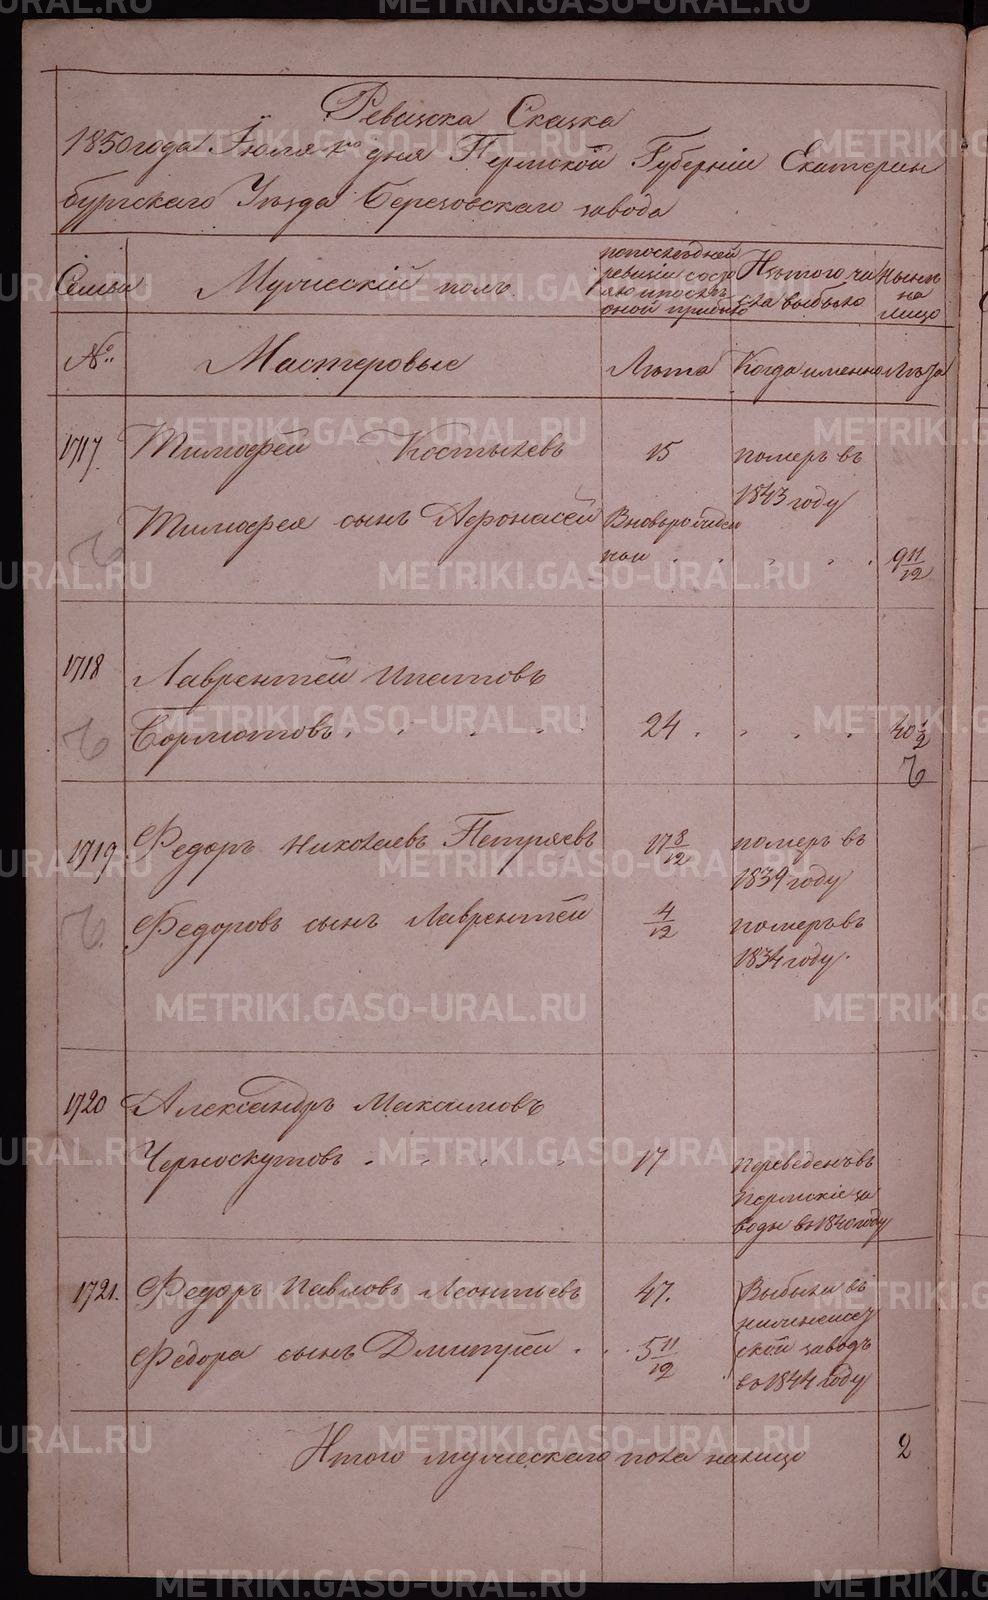 Ревизска Сказка
1850 года Іюля 1го дня Пермской Губерніи Екатерин
бургскаго Уезда Березовскаго завода
Семьи
Мужескій полъ
попоследней
ревизіи состо
яло и после
оной прибыло
Изтого чи
сла выбыло
Ныне
на
лицо
№
Мастеровые
Лѣта
Когда именно
Лѣта
1717.
Тимофей Костылевъ
15
померъ въ
1843 году
Тимофея сынъ Афонасей
Вновьрожден
ной
9 11/12
1718
Лаврентей Ипатовъ
Бормотовъ
24
40 1/2
1719
Федоръ Николаевъ Петряевъ
17 8/12
померъ въ
1839 году
Федоровъ сынъ Лаврентей
4/12
померъ въ
1834 году.
1720
Александръ Максимовъ
Черноскутовъ
17
переведенъ въ
Пермскіе за
воды в 1840 году
1721.
Федоръ Павловъ Леонтьевъ
47.
Выбыли въ
нижнеисет
ской заводъ
в 1844 году
Федора сынъ Дмитрей
5 11/12
Итого мужескаго пола налицо
2
METRIKI.GASO-URAL.RU